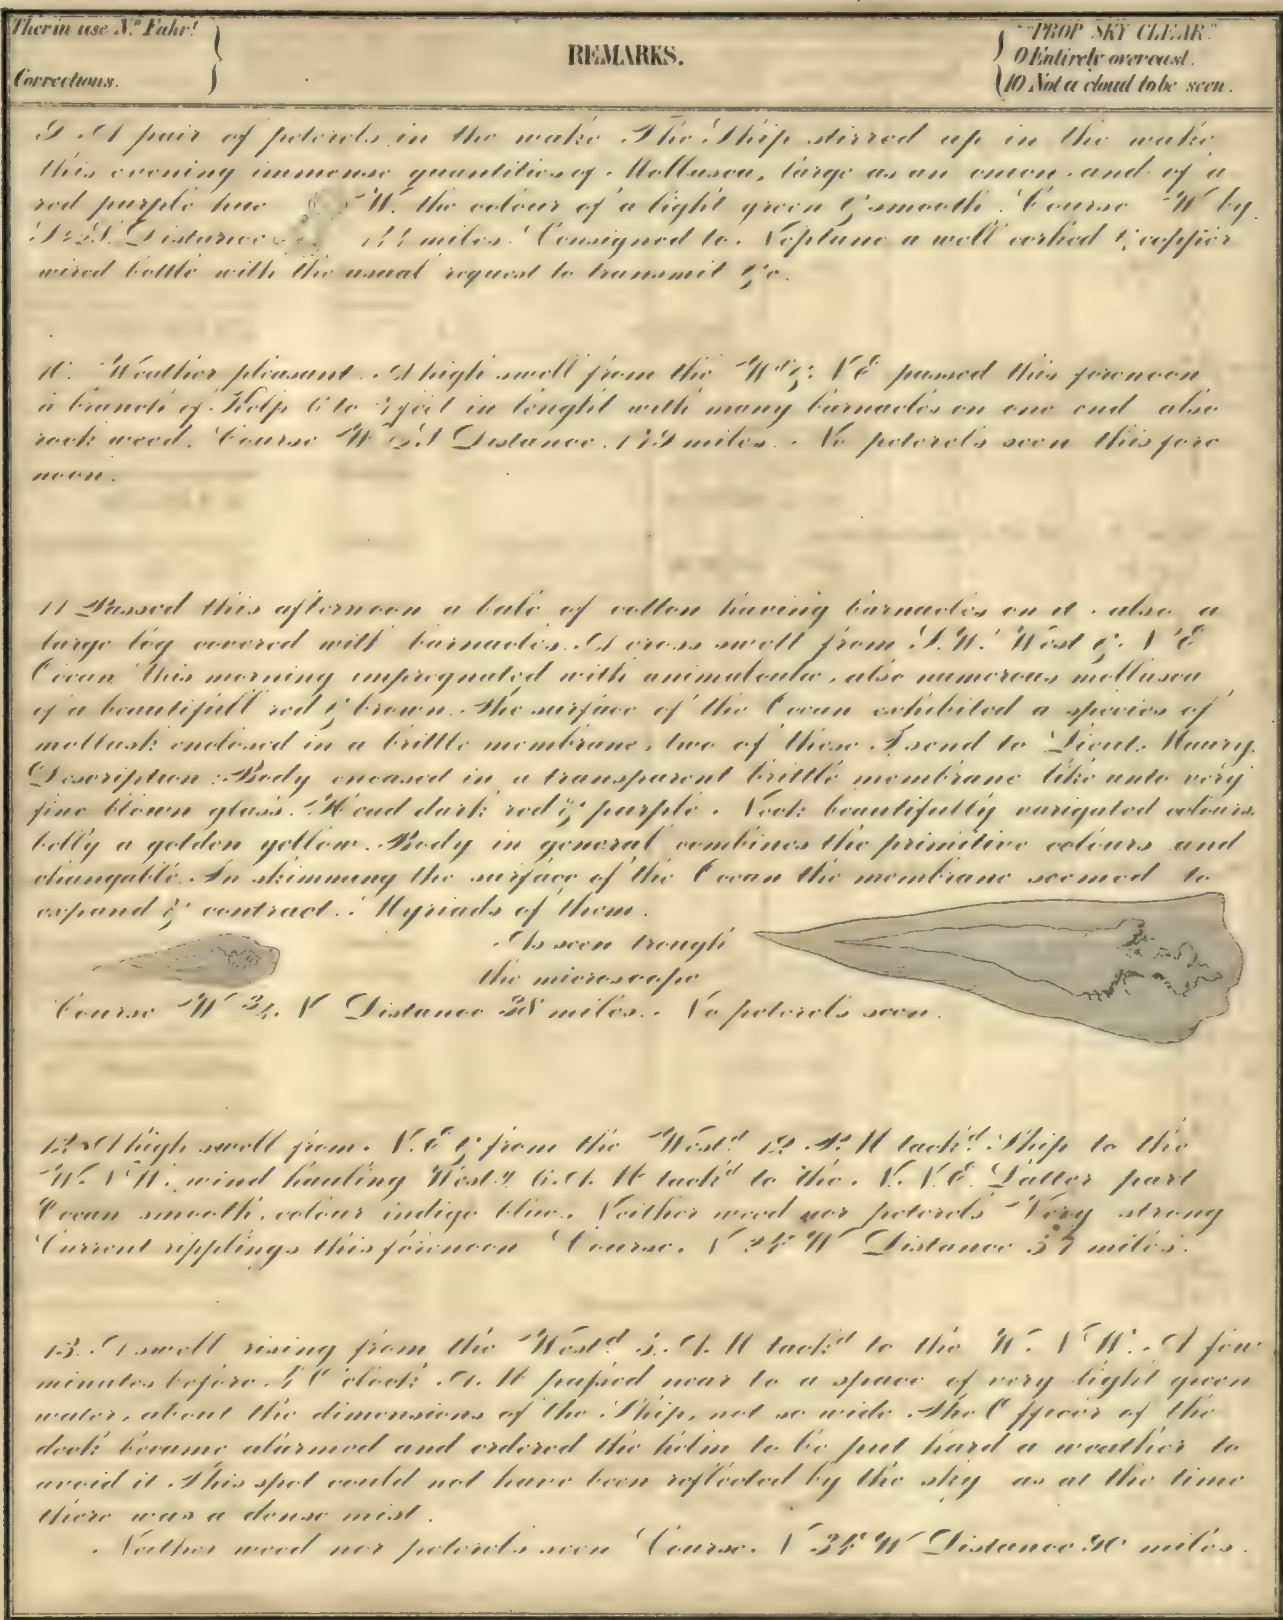 Ther in use No. Fahrt.
Corrections.
REMARKS.
"PROP SKY CLEAR."
0 Entirely overcast.
10 Not a cloud to be seen.
9 A pair of peterels in the wake The Ship stirred up in the wake
this evening immense quantities of Mollusca, large as an onion and of a
red purple hue W. the colour of a light green & smooth. Course W by
Distance miles. Consigned to Neptune a well corked & copper
wired bottle with the usual request to transmit &c.
10. Weather pleasant. A high swell from the Wd & NE passed this forenoon
a branch of Kelp 6 to feet in lenght with many barnacles on one end also
rock weed. Course W Distance miles. No peterels seen this fore
noon.
11 Passed this afternoon a bale of cotton having barnacles on it. also a
large log covered with barnacles. A cross swell from S.W. West & NE
Ocean this morning impregnated with animalculae, also numerous mollusca
of a beautifull red & brown. The surface of the Ocean exhibited a species of
mollusk enclosed in a brittle membrane, two of these I send to Lieut. Maury.
Description: Body encased in a transparent brittle membrane like unto very
fine blown glass. Head dark red & purple. Neck beautifully varigated colours.
belly a golden yellow. Body in general combines the primitive colours and
changable. In skimming the surface of the Ocean the membrane seemed to
expand & contract. Myriads of them.
As seen trough
the microscope
Course W 3/4 N Distance 38 miles. No peterels seen.
12. A high swell from N.E & from the Westd 12 P.M tackd Ship to the
W.NW. wind hauling Westy 6 A.M tackd to the N.N.E. Latter part
Ocean smooth, colour indigo blue. Neither weed nor peterels Very strong
Current ripplings this forenoon Course. N 24° W Distance 57 miles.
13. A swell rising from the Westd 3. A.M tackd to the W.NW. A few
minutes before 5 O'clock A.M passed near to a space of very light green
water, about the dimensions of the Ship, not so wide. The Officer of the
deck became alarmed and ordered the helm to be put hard a weather to
avoid it. This spot could not have been reflected by the sky as at the time
there was a dense mist.
Neither weed nor peterels seen Course. N 34° W Distance 90 miles.